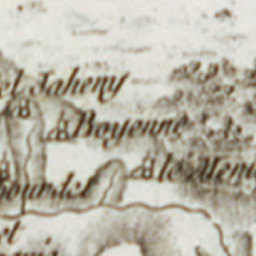 el Jaheny
Boyenne
le Meni
bourdel
el